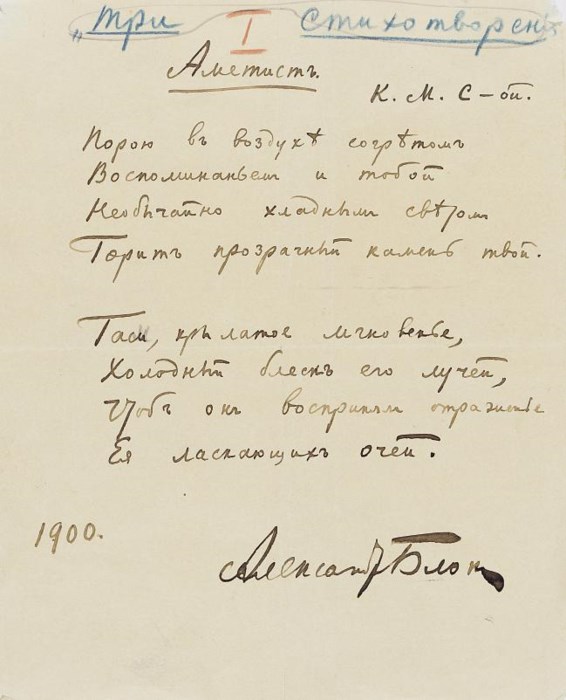 „Три Стихотворения
I
Аметистъ.
К. М. С–ой.
Порою въ воздухѣ согрѣтомъ
Воспоминаньем и тобой
Необычайно хладным свѣтом
Горитъ прозрачный камень твой.
Гаси, крылатое мгновенье,
Холодный блескъ его лучей,
Чтобъ онъ воспринял отраженье
Ея ласкающихъ очей.
1900.
Александр Блокъ